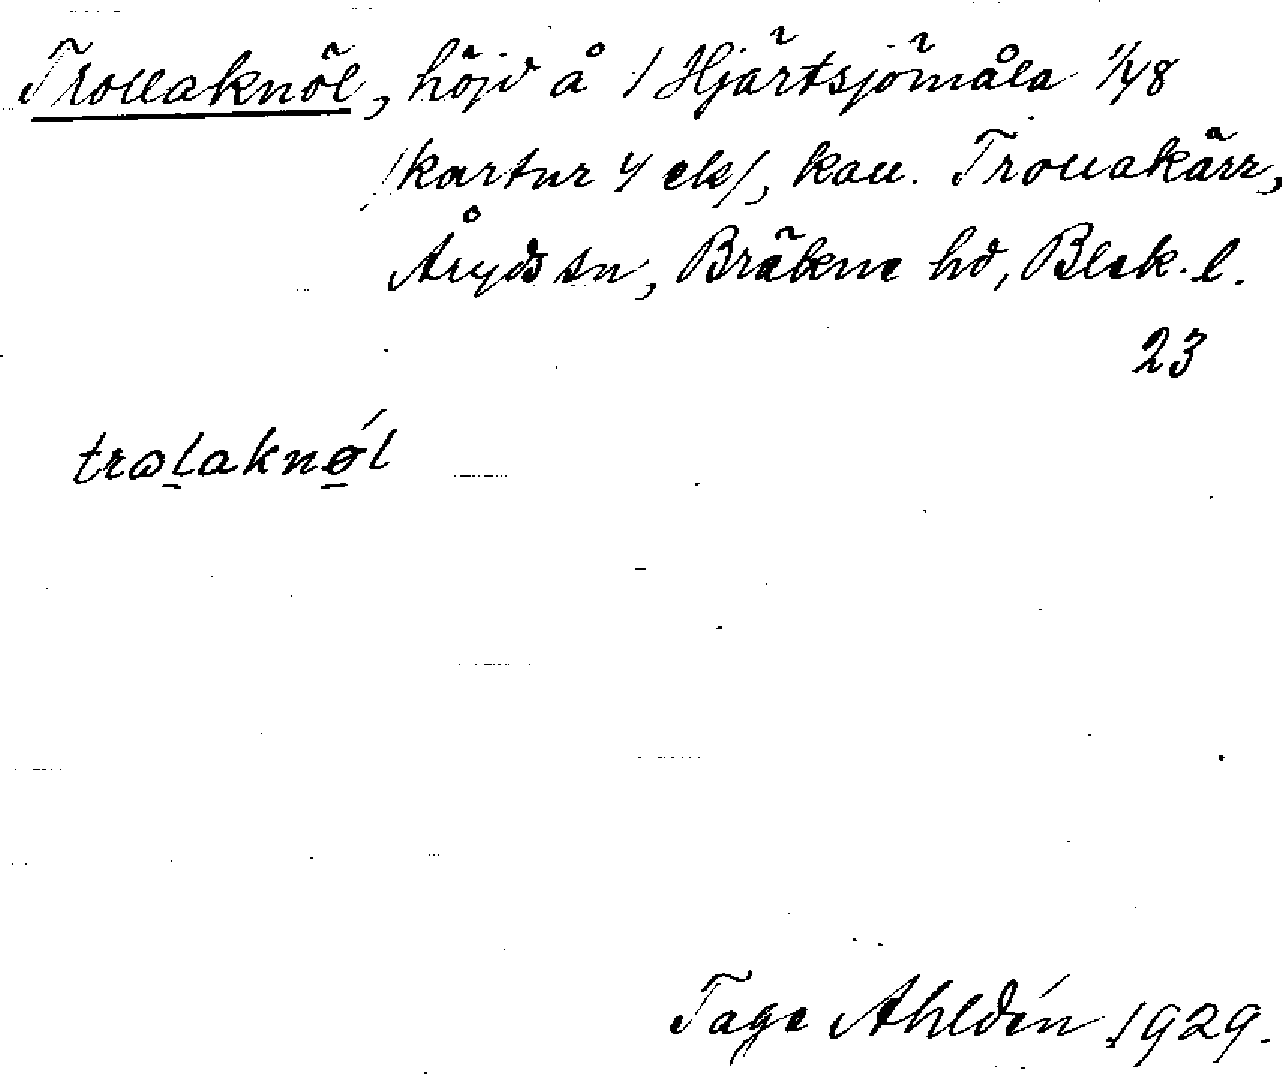 Trollaknöl, höjd å 1 Hjärtsjömåla 1/48
/kartnr 4 ek/, kall. Trollakärr,
Åryds sn, Bräkne hd, Blek. l.
23
trωlaknǿl
Tage Ahldén 1929.